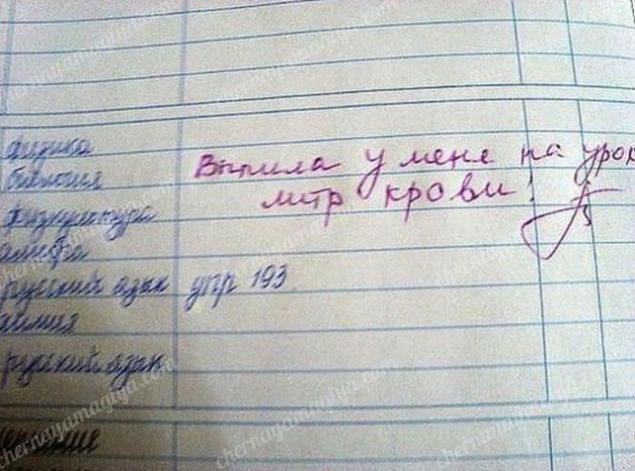 физика
биология
физкультура
алгебра
русский язык упр 193
химия
русский язык
Выпила у меня на урок
литр крови!
chernayamagiya.com